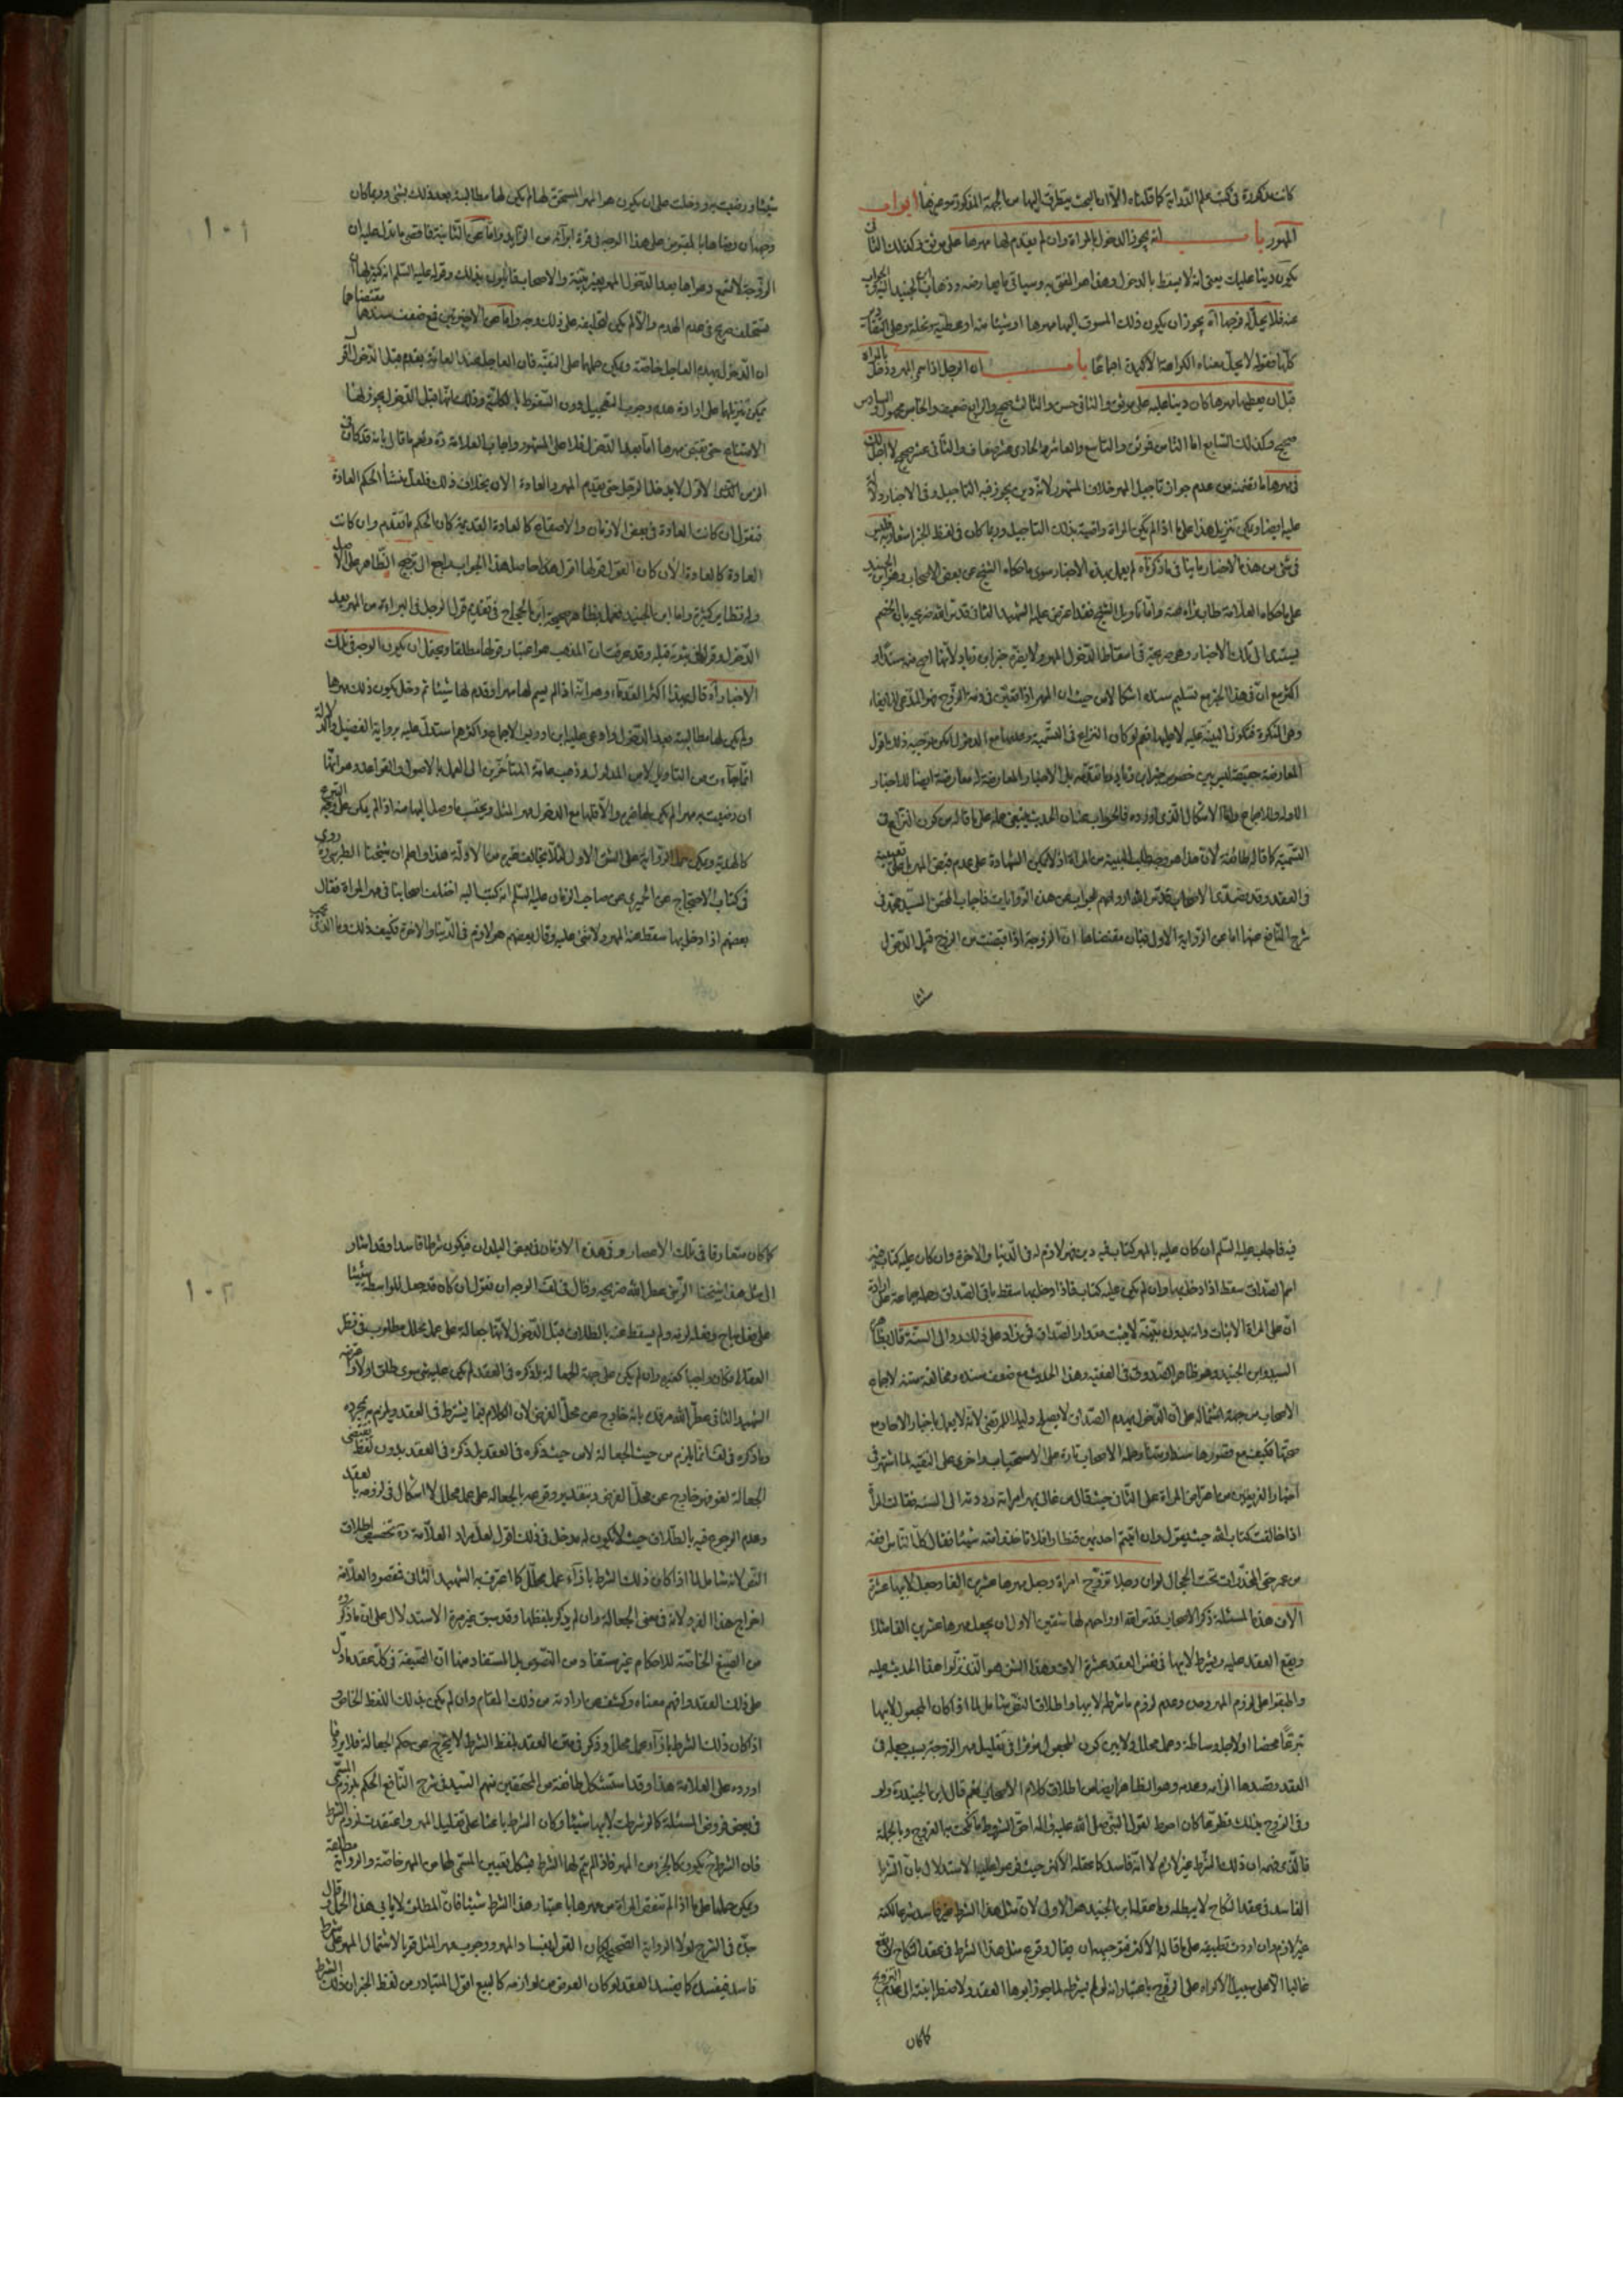 كانت مذكورة في كتب علم الدراية كما قدمناه الا ان البحث يتطرق اليها من الجهة المذكورة وغيرها ابواب
المهور باب انه يجوز الدخول بالمراة وان لم يقدم لها مهرها على موثق وكذلك الثاني
يكون دينا عليك يعني انه لا يسقط بالدخول وهذا هو المفتى به وسياتي ما يعارضه وذهاب ابن الجنيد اليه والجواب
عنه فلا يحل له فرجها آه يجوز ان يكون ذلك المسوق اليها مهرها او شيئا منه او عطية ونحلة وعلى
كلها فقوله لا يحل معناه الكراهة الاكيدة اجماعا باب ان الرجل اذا سمى المهر ودخل بالمراة
قبل ان يعطيها مهرها كان دينا عليه على موثق والثاني حسن والثالث صحيح والرابع ضعيف والخامس مجهول والسادس
صحيح وكذلك السابع اما الثامن فموثق والتاسع والعاشر والحادي عشر ضعاف والثاني عشر صحيح لا اجل لك
في مهرها ما تضمنه من عدم جواز تاجيل المهر خلاف المشهور لانه دين يجوز فيه التاجيل وفي الاخبار دلالة
عليه ايضا ويمكن تنزيل هذا على ما اذا لم تكن المراة راضية بذلك التاجيل وربما كان في لفظ الخبر اشعار به فليس
في شيء من هذه الاخبار ما ينافي ما ذكرناه لم يعمل بهذه الاخبار سوى ما حكاه الشيخ عن بعض الاصحاب وهو ابن الجنيد
على ما حكاه العلامة طاب ثراه عنه واما تاويل الشيخ فقد اعترض عليه الشهيد الثاني قدس الله ضريحه بان الخصم
يستند الى تلك الاخبار وهي صريحة في اسقاط الدخول المهر ولا يضره خبر ابن زياد لانها اصح منه سندا و
اكثر مع ان في هذا الخبر مع تسليم سنده اشكالا من حيث ان المهر اذا تعين في ذمة الزوج فهو المدعي للايفاء
وهي المنكرة فتكون البينة عليه لا عليها نعم لو كان النزاع في التسمية وعدمها مع الدخول امكن توجيه ذلك اقول
المعارضة حينئذ ليس بين خصوص خبر ابن زياد وما تقدمه بل الاخبار المعارضة له معارضة ايضا للاخبار
الاوله والاجماع واما الاشكال الذي اورده فالجواب عنه ان الحديث ينبغي حمله على ما قاله من كون النزاع في
التسمية كما قاله طائفة لان هذا هو وجه طلب البينة من المراة اذ لا يمكن الشهادة على عدم قبض المهر بل على تعيينه
في العقد وقد تصدى الاصحاب قدس الله ارواحهم للجواب عن هذه الروايات فاجاب المحقق السيد محمد في
شرح النافع عنها اما عن الرواية الاولى فبان مقتضاها ان الزوجة اذا قبضت من الزوج قبل الدخول
شيئا
شيئا ورضيت به ودخلت على ان يكون هو المهر المستحق لها لم يكن لها مطالبته بعد ذلك بشيء وربما كان
وجهه ان رضاها بالمقبوض على هذا الوجه في قوة ابرائه من الزائد واما عن الثانية فاقصى ما تدل عليه ان
الزوجة لا تسمع دعواها بعد الدخول المهر بغير بينة والاصحاب قائلون بذلك وقوله عليه السلام انه كثير لها ان
يستحلف صريح في عدم الهدم والا لم يكن لتحليفه على ذلك وجه واما عن الاخيرتين فمع ضعف سندهما مقتضاهما
ان الدخول يهدم العاجل خاصة ويمكن حملها على التقية فان العاجل عند العامة يقدم قبل الدخول اقول
يمكن تنزيلها على ارادة هدم وجوب التعجيل دون السقوط بالكلية وذلك انها قبل الدخول يجوز لها
الامتناع حتى تقبض مهرها اما بعد الدخول فلا على المشهور واجاب العلامة ره وغيره ما قال بانه قد كان في
الزمن الاول لا يدخل الرجل حتى يقدم المهر والعادة الان بخلاف ذلك فلعل منشأ الحكم العادة
فنقول ان كانت العادة في بعض الازمان والاصقاع كالعادة القديمة كان الحكم ما تقدم وان كانت
العادة كالعادة الان كان القول قولها اقول هذا حاصل هذا الجواب راجع الى ترجيح الظاهر على الاصل
وله نظاير كثيرة واما ابن الجنيد فعمل بظاهر صحيحة ابن الحجاج في تقديم قول الرجل في البراءة من المهر بعد
الدخول وقولها في ثبوته قبله وقد عرفت ان المذهب هو اعتبار قولها مطلقا ويحتمل ان يكون الوجه في تلك
الاخبار آه قال بهذا اكثر القدماء وهو انه اذا لم يسم لها مهرا وقدم لها شيئا ثم دخل يكون ذلك مهرها
ولم يكن لها مطالبته بعد الدخول وادعى عليه ابن ادريس الاجماع واكثرهم استدل عليه برواية الفضيل ولادلالة
ان رضيت به مهرا لم يكن لها غيره والا فلها مع الدخول مهر المثل ويحتسب ما وصل اليها منه اذا لم يكن على وجه التبرع
كالهدية ويمكن حمل الرواية على الشق الاول لئلا تخالف غيرها من الادلة هذا واعلم ان شيخنا الطبرسي ره روى
في كتاب الاحتجاج عن الحميري عن صاحب الزمان عليه السلام انه كتب اليه اختلف اصحابنا في مهر المراة فقال
بعضهم اذا دخل بها سقط عنه المهر ولا شيء عليه وقال بعضهم هو لازم في الدنيا والاخرة فكيف ذلك وما الذي يجب
١٠١
فيه فاجاب عليه السلم ان كان عليه بالمهر كتاب فيه دين فهو لازم له في الدنيا والاخرة وان كان عليه كتاب فيه
اسم الصداق سقط اذا دخل بها وان لم يكن عليه كتاب فاذا دخل بها سقط باقي الصداق وحمله جماعة على ارادة
ان على المراة الاثبات وانه بدون بينة لا يثبت مقدار الصداق فمن زاد على ذلك رد الى السنة قال بظاهره
السيد وابن الجنيد وهو ظاهر الصدوق في الفقيه وهذا الحديث مع ضعف سنده ومخالفة متنه لاجماع
الاصحاب من جهة اشتماله على ان الدخول يهدم الصداق لا يصلح دليلا للمرتضى لانه لا يعمل باخبار الاحاد مع
صحتها فكيف مع قصورها سندا ومتنا وحمله الاصحاب تارة على الاستحباب واخرى على التقية لما اشتهر في
اخبار الفريقين من اعتراض المراة على الثاني حيث قال من غالى بمهر امراته رددته الى السنة فقالت المرأة
اذا خالفت كتاب الله حيث يقول وان اتيتم احديهن قنطارا فلا تاخذوا منه شيئا فقال كل الناس افقه
من عمر حتى المخدرات تحت الحجال لو ان رجلا تزوج امراة وجعل مهرها عشرين الفا وجعل لابيها عشرة
الاف هذه المسئلة ذكر الاصحاب قدس الله ارواحهم لها شقين الاول ان يجعل مهرها عشرين الفا مثلا
ويقع العقد عليه ويشرط لابيها في نفس العقد عشرة الاف وهذا الشق هو الذي نزلوا هذا الحديث عليه
واطبقوا على لزوم المهر وعدم لزوم ما شرطه لابيها واطلاق النص شامل لما اذا كان المجعول لابيها
تبرعا محضا او لاجل وساطة وعمل محلل ولا بين كون المجعول مؤثرا في تقليل مهر الزوجة بسبب جعله في
العقد وقصدها الزامه وعدمه وهو الظاهر ايضا من اطلاق كلام الاصحاب نعم قال ابن الجنيد ره ولو
وفى الزوج بذلك تطوعا كان احوط لقول النبي صلى الله عليه وآله احق الشروط ما نكحت به الفروج وبالجملة
فالذي فهمه ان ذلك الشرط غير لازم لا انه فاسد كما عقله الاكثر حيث فرعوا عليها الاستدلال بان الشرط
الفاسد في عقد النكاح لا يبطله وما عقله ابن الجنيد هو الاولى لان مثل هذا الشرط غير فاسد شرعا لكنه
غير لازم وان اردت تطبيقه على ما قاله الاكثر فتوجيهه ان يقال وقوع مثل هذا الشرط في عقد النكاح لا يقع
غالبا الا على سبيل الاكراه على الزوج باعتبار انه لو لم يشرطه لما جوز ابوها العقد ولا اضطرابته الى عدم التزويج
كما كان
كما كان متعارفا في تلك الاعصار وفي هذه الاوقات في بعض البلدان فيكون شرطا فاسدا وقد اشار
الى مثل هذا شيخنا الزيني عطر الله ضريحه وقال في لف الوجه ان نقول ان كان قد جعل للواسطة شيئا
على فعل مباح وفعله لزمه ولم يسقط عنه بالطلاق قبل الدخول لانها جعالة على عمل محلل مطلوب في نظر
العقلاء فكان واجبا كغيره وان لم يكن على جهة الجعالة بل ذكره في العقد لم يكن عليه شيء سوى طلق او لا واعترضه
الشهيد الثاني عطر الله مرقده بانه خارج عن محل الفرض لان الكلام فيما يشترط في العقد ويلزم به بمجرده
وما ذكره في لف انما يلزم من حيث الجعالة لا من حيث ذكره في العقد بل ذكره في العقد بدون لفظ يقتضي
الجعالة لغو فهو خارج عن محل الفرض وبتقدير وقوعه بالجعالة على عمل محلل لا اشكال في لزومه بالعقد
وعدم الرجوع فيه بالطلاق حيث لا يكون له مدخل في ذلك اقول لعل مراد العلامة ره تخصيص اطلاق
النص لانه شامل لما اذا كان ذلك الشرط بازاء عمل محلل كما اعترف به الشهيد الثاني فقصد العلامة
اخراج هذا الفرد لانه في معنى الجعالة وان لم يذكر بلفظها وقد سبق غير مرة الاستدلال على ان ما ذكروه
من الصيغ الخاصة للاحكام غير مستفاد من النصوص بل المستفاد منها ان الصيغة في كل عقد ما دل
على ذلك العقد وافهم معناه وكشف عن ارادته من ذلك المقام وان لم يكن بذلك اللفظ الخاص و
اذا كان ذلك الشرط بازاء عمل محلل وذكر في متن العقد بلفظ الشرط لا يخرج عن حكم الجعالة فلا يرد ما
اورده على العلامة هذا وقد استشكل طائفة من المحققين منهم السيد في شرح النافع الحكم بلزوم المسمى
في بعض فروض المسئلة كما لو شرطت لابيها شيئا وكان الشرط باعثا على تقليل المهر واعتقدت لزوم الشرط
فان الشرط ح يكون كالجزء من المهر فاذا لم يتم لها الشرط يشكل تعيين المسمى لها من المهر خاصة والرواية مطلقة
ويمكن حملها على ما اذا لم تنقص المراة من مهرها باعتبار هذا الشرط شيئا فان المطلق لا يابى هذا الحمل وقال
جدي في الشرح لولا الرواية الصحيحة لكان القول بفساد المهر ووجوب مهر المثل قويا لاشتمال المهر على شرط
فاسد فيفسد كما يفسد العقد لو كان العوض من لوازمه كالبيع اقول المتبادر من لفظ الخبر ان ذلك الشرط
١٠٢